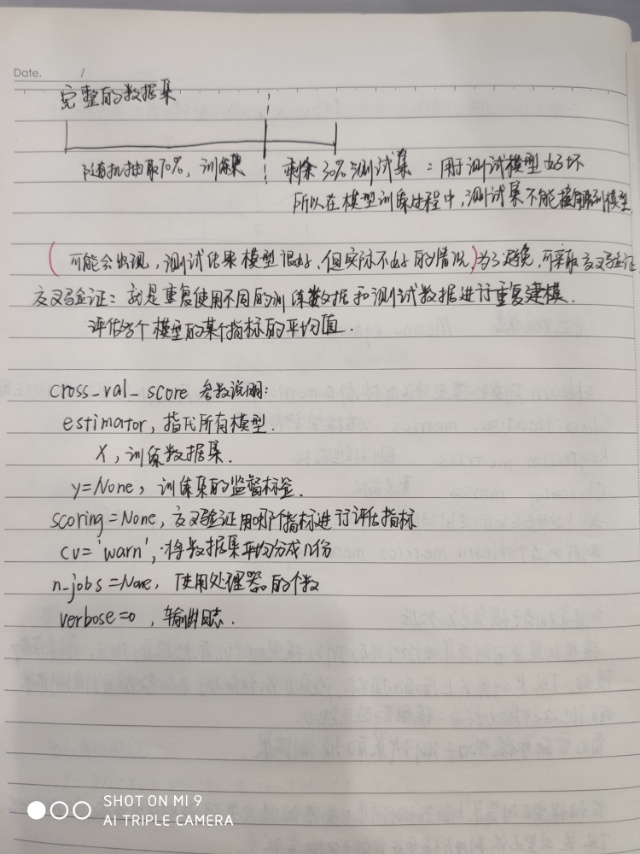 Date. /
完整的数据集
随机抽取70%，训练集
剩余30%测试集：用于测试模型好坏
所以在模型训练过程中，测试集不能接触到模型
(可能会出现，测试结果模型很好，但实际不好的情况)为了避免，可采取交叉验证
交叉验证：就是重复使用不同的训练数据和测试数据进行重复建模.
评估各个模型的某个指标的平均值.
cross_val_score 参数说明:
estimator，指代所有模型.
X，训练数据集.
y=None，训练集的监督标签.
scoring=None，交叉验证用哪个指标进行评估指标
cv='warn'，将数据集平均分成几份
n_jobs=None，使用处理器的个数
verbose=0，输出日志.
SHOT ON MI 9
AI TRIPLE CAMERA